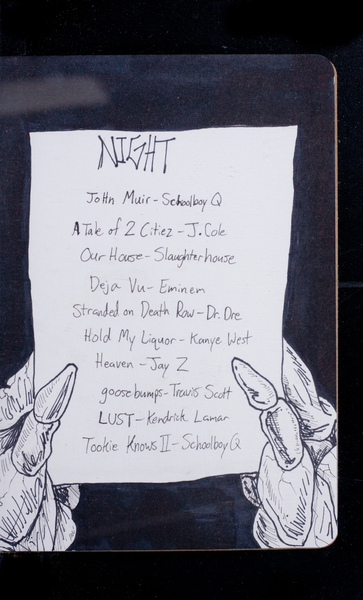 NIGHT
JoHn Muir - Schoolboy Q
A Tale of 2 Citiez - J. Cole
Our House - Slaughterhouse
Deja Vu - Eminem
Stranded on Death Row - Dr. Dre
Hold My Liquor - Kanye West
Heaven - Jay Z
goosebumps - Travis Scott
LUST - Kendrick Lamar
Tookie Knows II - Schoolboy Q